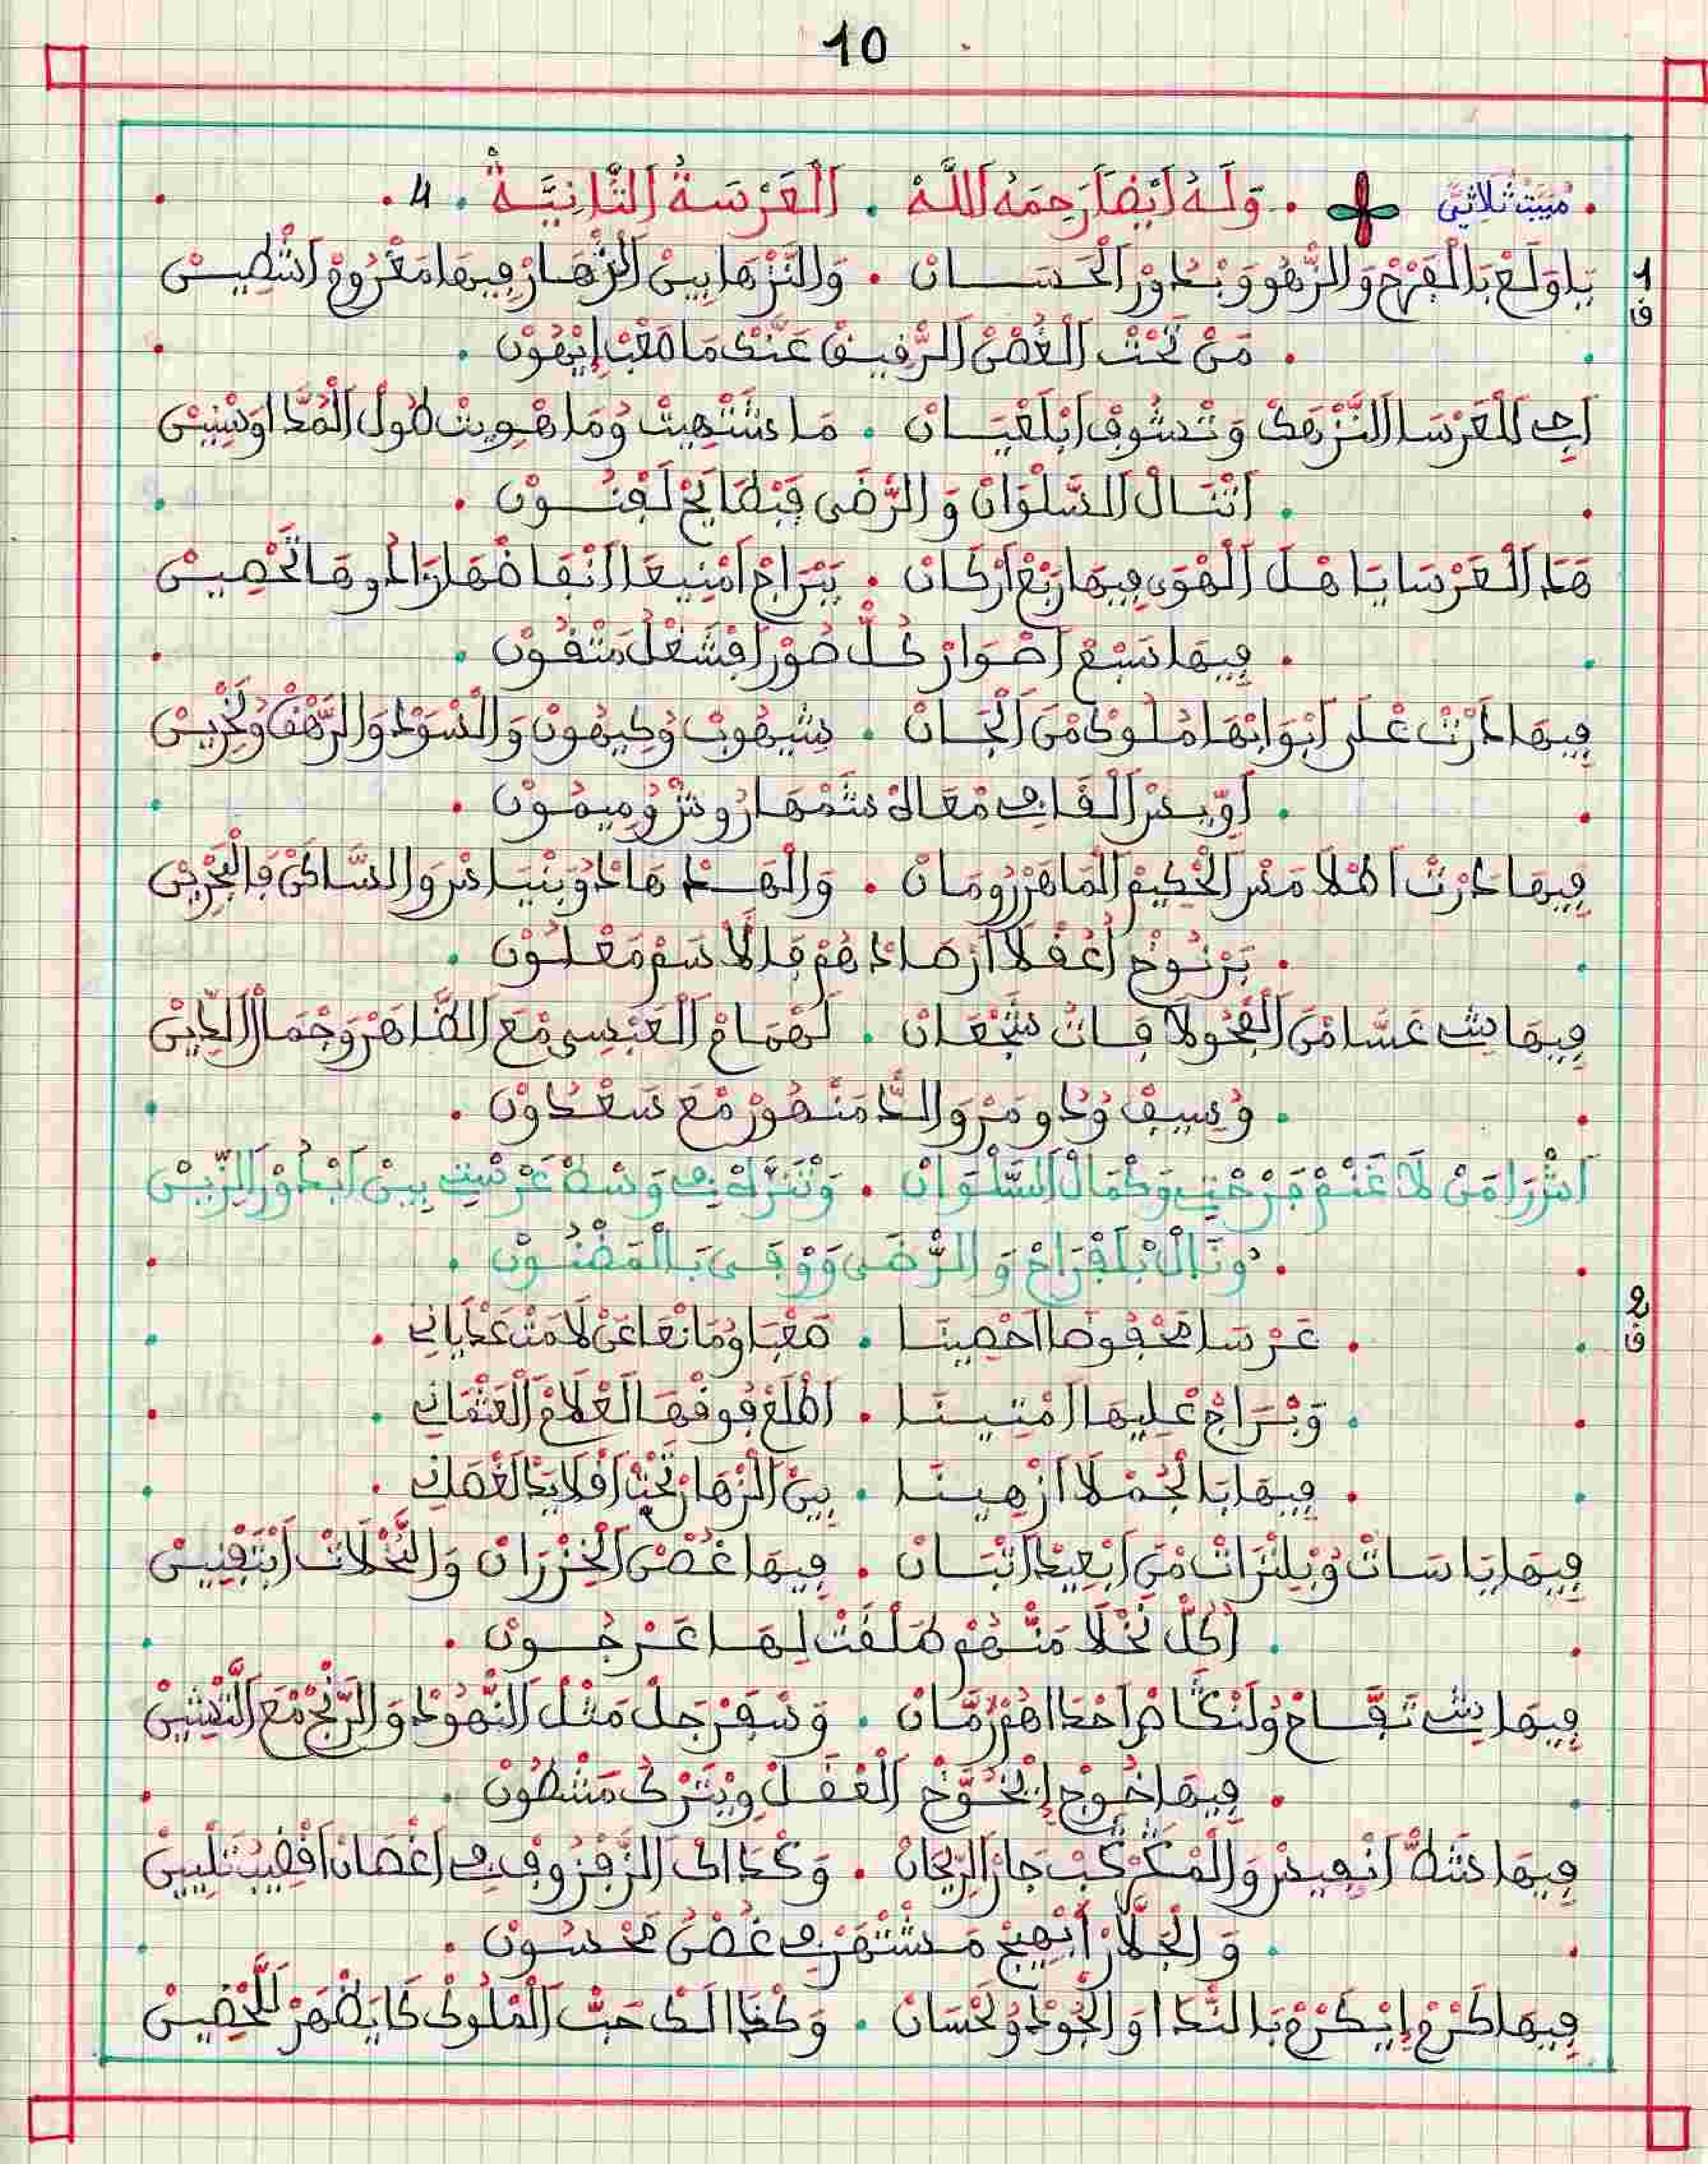 10
مبيت ثلاثي . وَلَهُ أَيْضاً رَحِمَهُ اللَّهُ . اَلْعَرْصَةُ اَلثَّانِيَّةُ . 4 .
1 ق
يا ولع بالفرح والزهو وبدور الحسان . والنزها بين الزهار فيها معروم اشطين
. من تحت الغصن الرفيق عنك ما صعب إيهون .
اجي للعرسا النزهك وتشوف ابلعيان . ما شتهيت وما هويت طول المدا وسنين
. اتنال السلوان والرضى قبطايح لفنون .
هد العرسا يا هل الهوى فيها ربع اركان . ببراج امنيعا انقاضها دو ها تحصين
. فيها سبع اصوار كل صور افشغل متقون .
فيها دارت على ابوابها ملوك من الجان . شيهوب وكيهون والسود والرهق
. اويس القافي معاه شمهاروش وميمون .
فيها دارت اطلامس الحكيم الماهر رومان . والهد هاد وبنياس والساكن فالبحرين
. برنوخ اعقلا ارصادهم فالاسم معلون .
فيها شي عسا من الفحولا فات شجعان . لهمام العبسي مع الظاهر وجمال الدين
. وسيف ودو مر والد منصور مع سعدون .
اش را من لا غنم فرحتي وكمال السلوان . وتنزه في وسط عرستي بين ابدور الزين
. ونال بلفراح والرضى ووفى بالمضنون .
2 ق
. عرسا محفوضا احصينا . صعبا ومانعا عن لا مت عديان .
. وبراج عليها امتينا . اطلع فوقها لعلام العثماني .
. فيها بالجملا ازهينا . بين الزهار تحت افلايد لغصان .
فيها ياسات وبلنزات من ابعيد اتبان . فيها غصن الخزران والنخلات ابتفنين
. اكل نخلا منهم طلقت لها عرجون .
فيها شي تفاح ولنكاص احداهم رمان . وسفرجل مثل النهود والرنج مع التشين
. فيها خوج إيخوخ العقل ويترك مشطون .
فيها شط انفيس والمكركب جار الريحان . وكداك الزفزوف في اغصان افضيب تليين
. والجلار ابهيج مشتهر في غصن محسون .
فيها كرم إيكرم بالندا والجود ولحسان . وكضالك حب الملوك كا يظهر للحضين